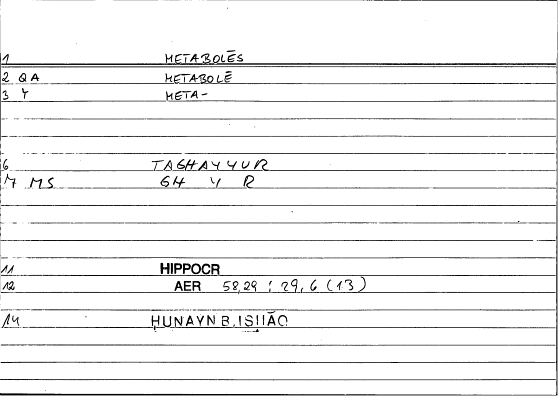 1 METABOLĒS
2 QA METABOLĒ
3 Y META-
6 TAGHAYYUR
7 MS GH Y R
11 HIPPOCR
12 AER 58,29 : 29,6 (13)
14 ḤUNAYN B. ISḤĀQ